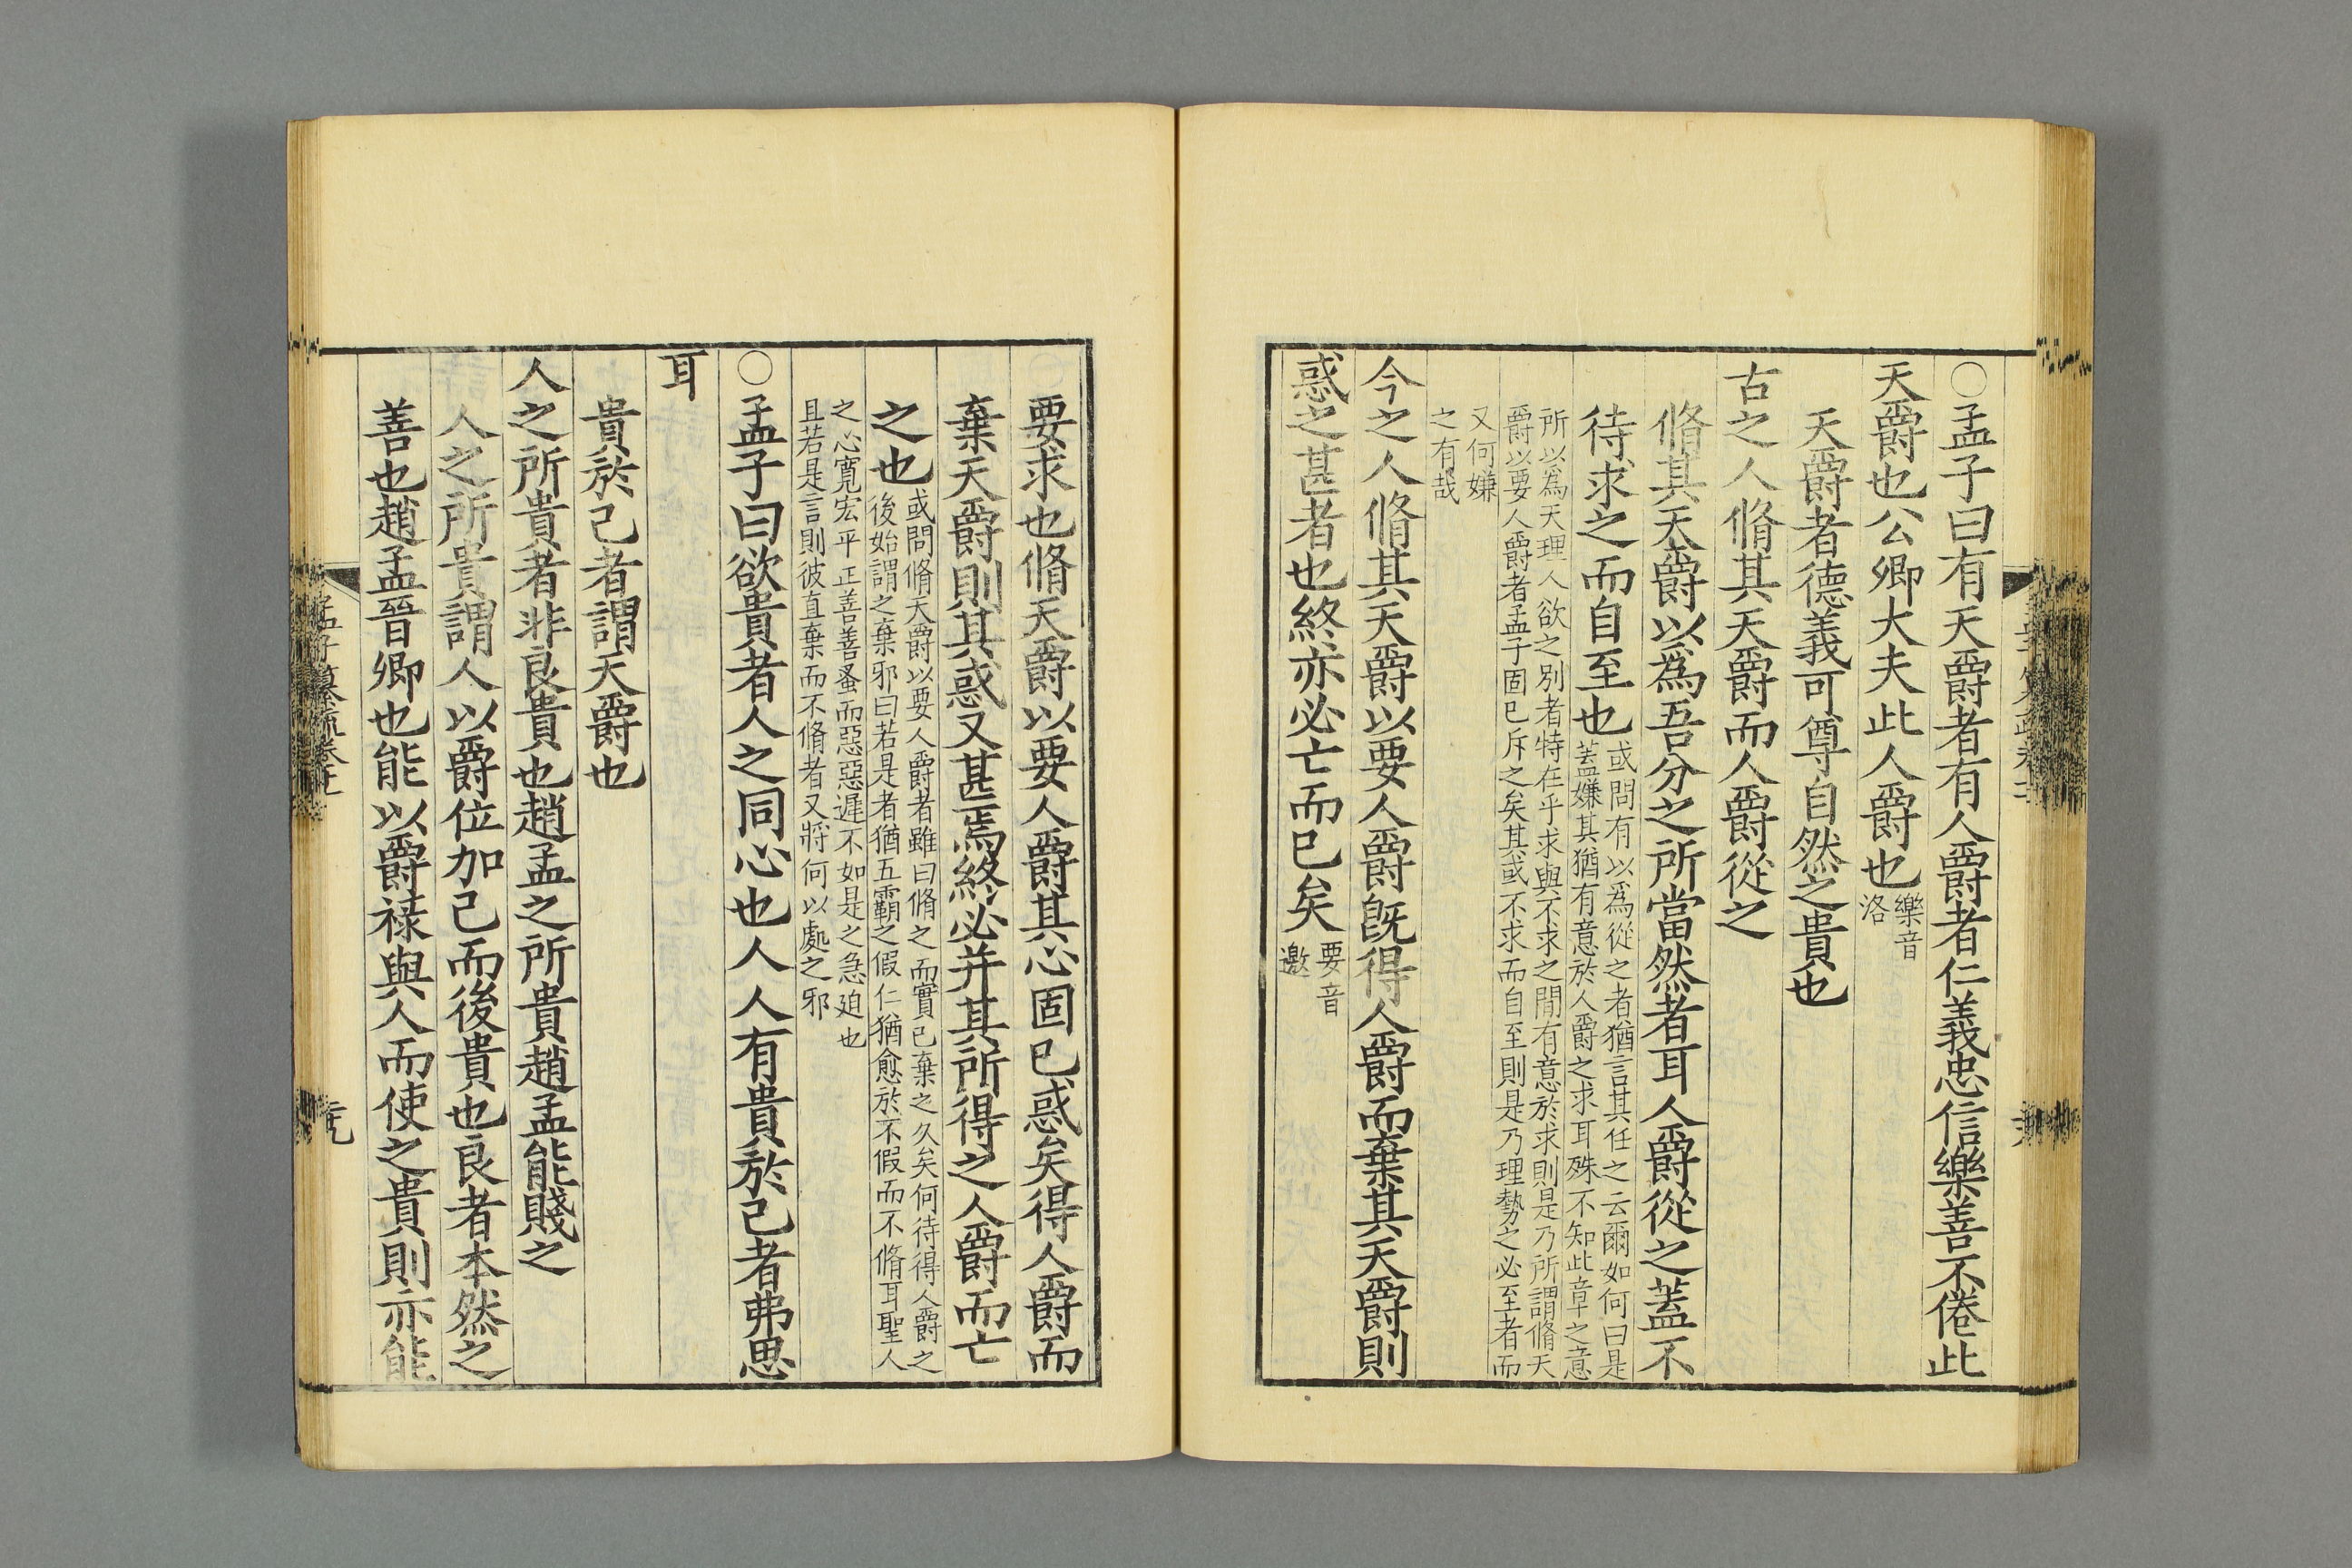 〇孟子曰有天爵者有人爵者仁義忠信樂善不倦此
天爵也公卿大夫此人爵也
樂音
洛
天爵者德義可尊自然之貴也
古之人脩其天爵而人爵從之
脩其天爵以爲吾分之所當然者耳人爵從之蓋不
待求之而自至也
或問有以爲從之者猶言其任之云爾如何曰是
蓋嫌其猶有意於人爵之求耳殊不知此章之意
所以爲天理人欲之別者特在乎求與不求之閒有意於求則是乃所謂脩天
爵以要人爵者孟子固已斥之矣其或不求而自至則是乃理勢之必至者而
又何嫌
之有哉
今之人脩其天爵以要人爵旣得人爵而棄其天爵則
惑之甚者也終亦必亡而已矣
要音
邀
要求也脩天爵以要人爵其心固已惑矣得人爵而
棄天爵則其惑又甚焉終必并其所得之人爵而亡
之也
或問脩天爵以要人爵者雖曰脩之而實已棄之久矣何待得人爵之
後始謂之棄邪曰若是者猶五霸之假仁猶愈於不假而不脩耳聖人
之心寬宏平正善善蚤而惡惡遲不如是之急迫也
且若是言則彼直棄而不脩者又將何以處之邪
〇孟子曰欲貴者人之同心也人人有貴於己者弗思
耳
貴於己者謂天爵也
人之所貴者非良貴也趙孟之所貴趙孟能賤之
人之所貴謂人以爵位加己而後貴也良者本然之
善也趙孟晉卿也能以爵祿與人而使之貴則亦能
孟子纂疏卷十一